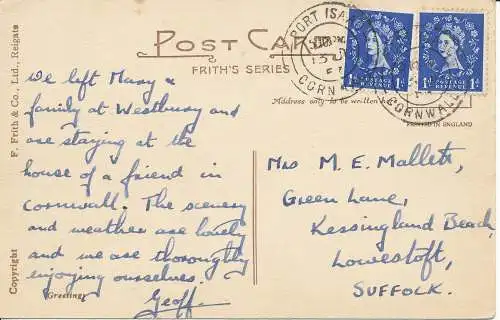 POST CARD
FRITH'S SERIES
Address only to be written
PRINTED IN ENGLAND
PORT ISAAC
CORNWALL
POSTAGE REVENUE
1d 1d
POSTAGE REVENUE
1d 1d
CORNWALL
F. Frith & Co., Ltd., Reigate
Copyright
We left Mary &
family at Westbury and
are staying at the
house of a friend in
Cornwall. The scenery
and weather are lovely
and we are thoroughly
enjoying ourselves.
Greetings
Geoff.
Mrs M. E. Mallett,
Green Lane,
Kessingland Beach,
Lowestoft,
SUFFOLK.